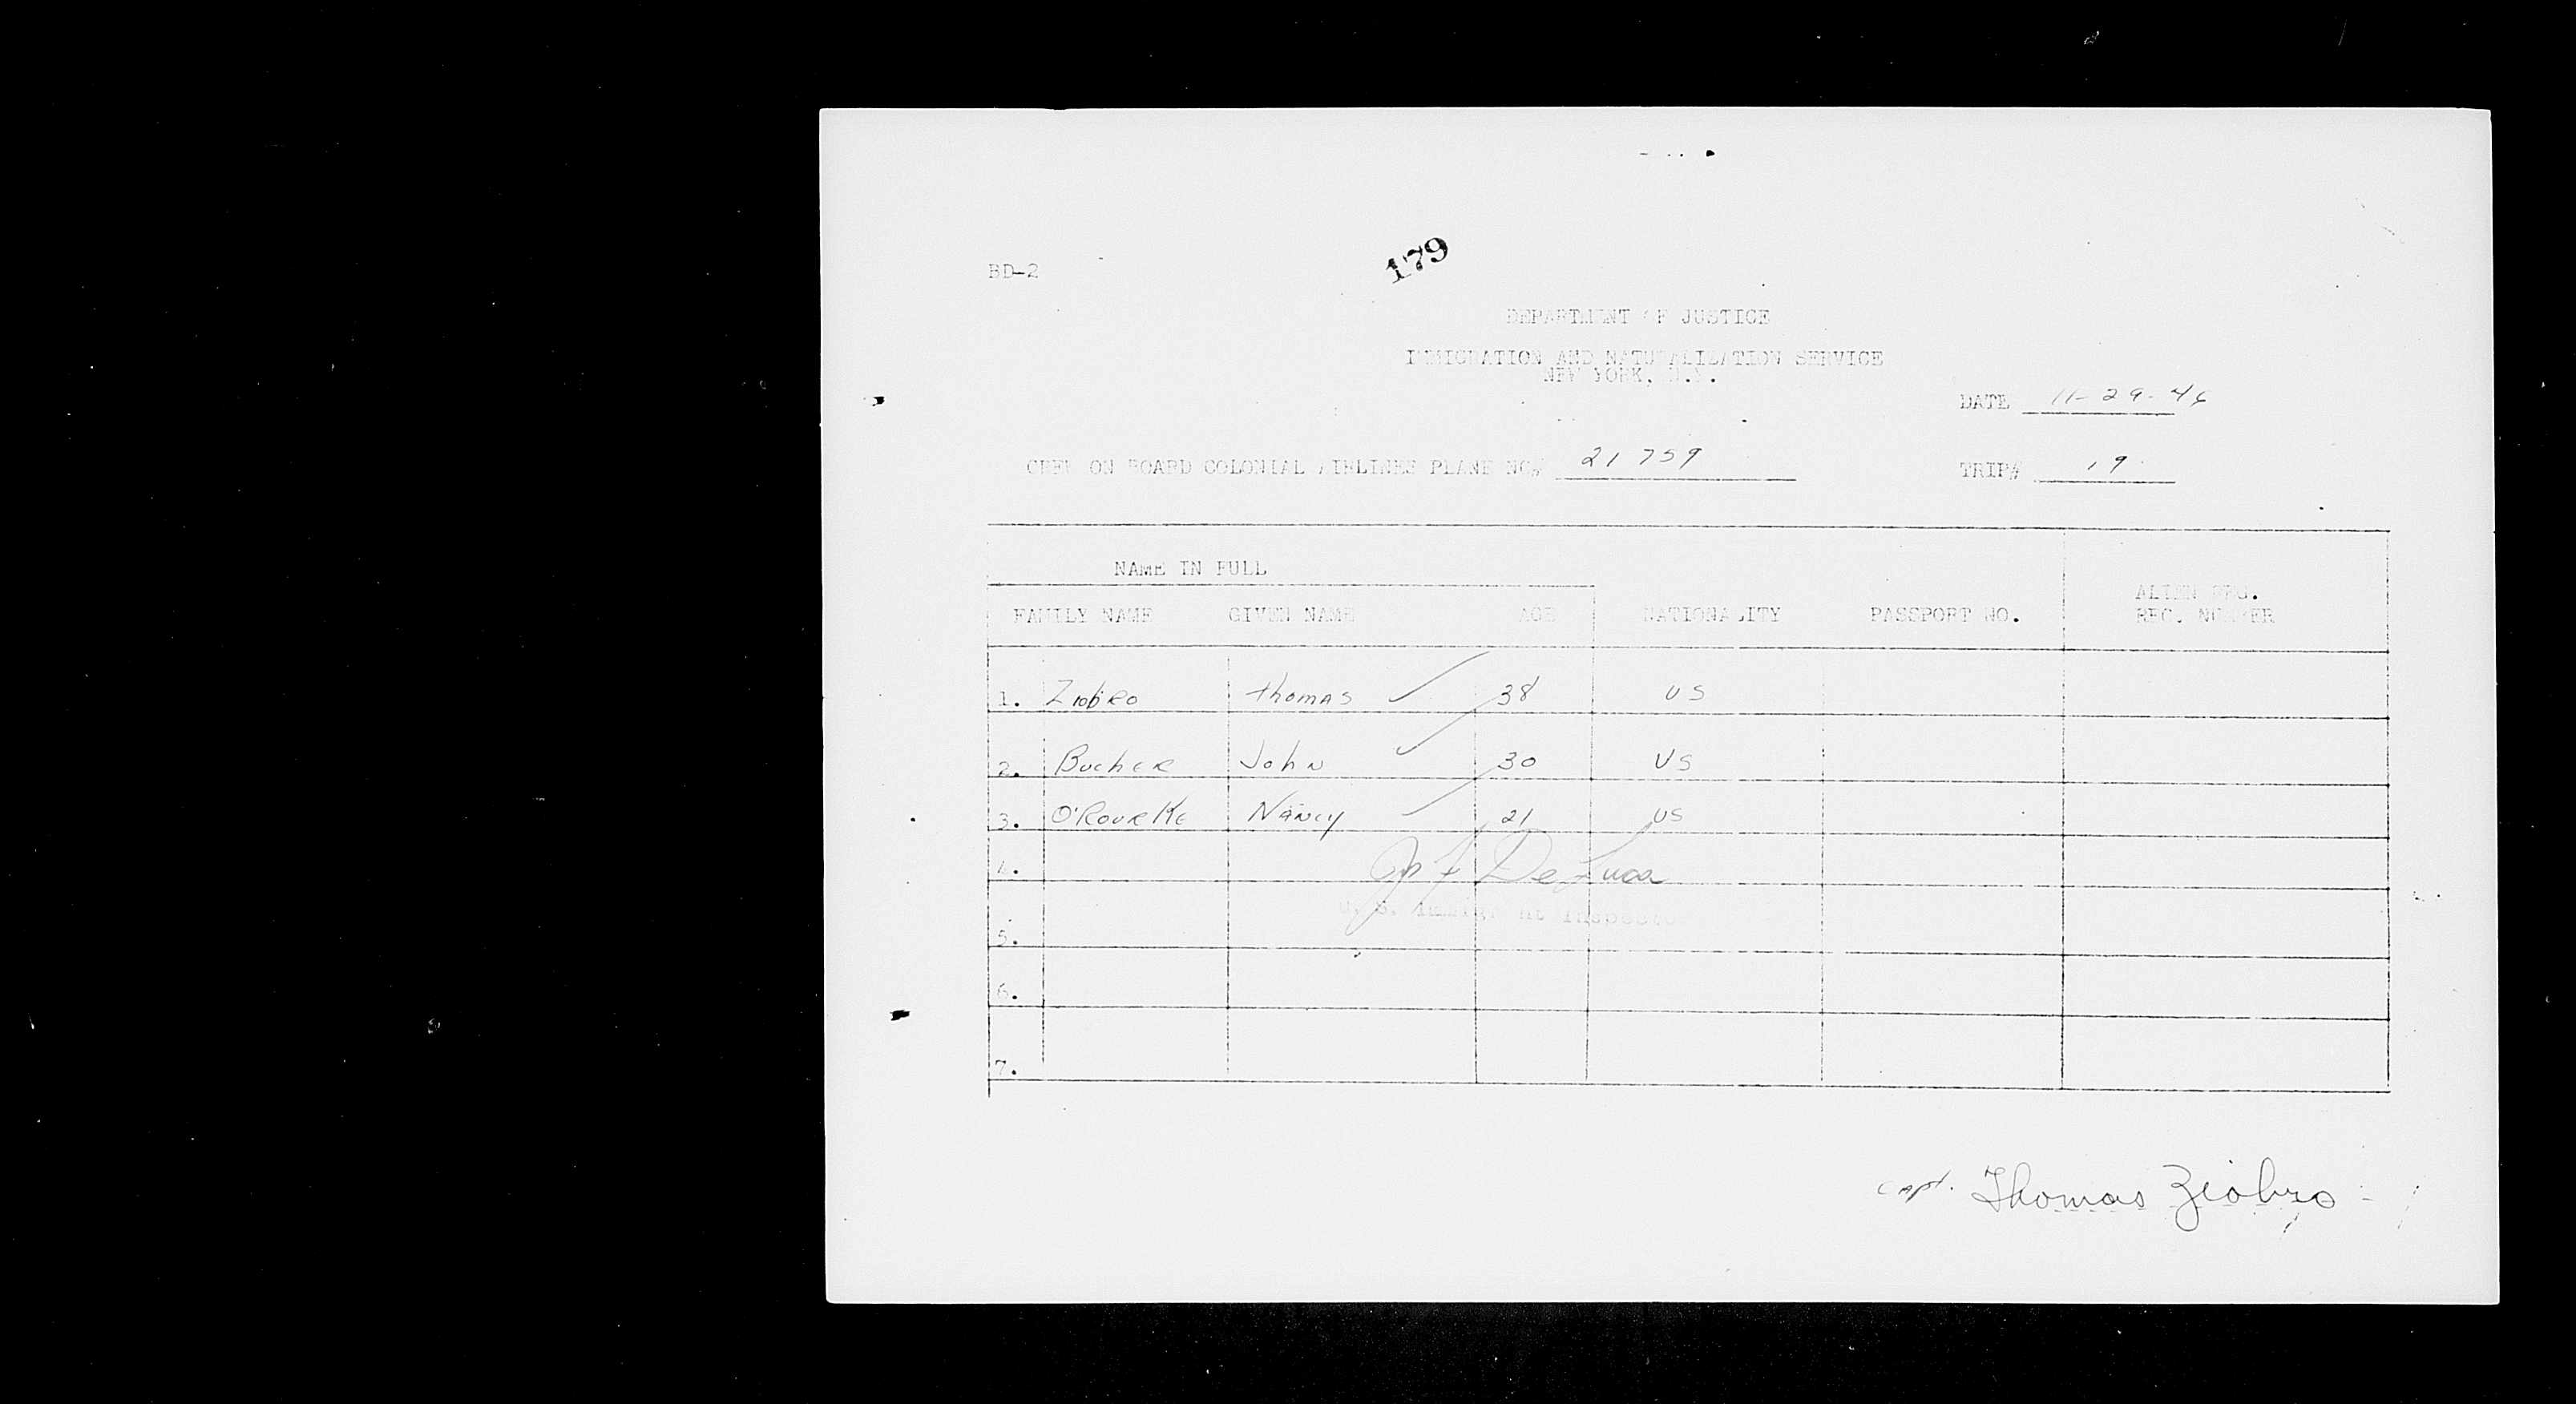 179
BD-2
DEPARTMENT OF JUSTICE
IMMIGRATION AND NATURALIZATION SERVICE
NEW YORK, N.Y.
DATE 11-29-46
CREW ON BOARD COLONIAL AIRLINES PLANE NO# 21759
TRIP# 19
NAME IN FULL
FAMILY NAME GIVEN NAME AGE NATIONALITY PASSPORT NO. ALIEN REG.
REC. NUMBER
1. Ziobro Thomas 38 US
2. Bucher John 30 US
3. O'Rourke Nancy 21 US
4. De Luca
5. U. S. Immigrant Inspector
6.
7.
Capt. Thomas Ziobro